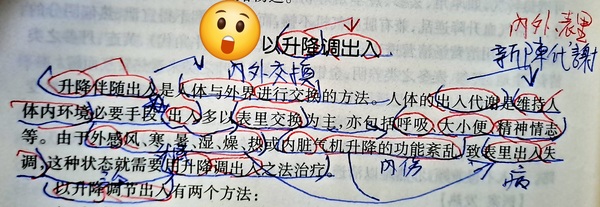 内外.表里
新陳代謝
以升降调出入
内外交换
升降伴随出入是人体与外界进行交换的方法。人体的出入代谢是维持人
体内环境必要手段。出入多以表里交换为主,亦包括呼吸、大小便、精神情志
等。由于外感风、寒、暑、湿、燥、热或内脏气机升降的功能紊乱,致表里出入失
调,这种状态就需要用升降调出入之法治疗。
内伤
病
以升降调节出入有两个方法: